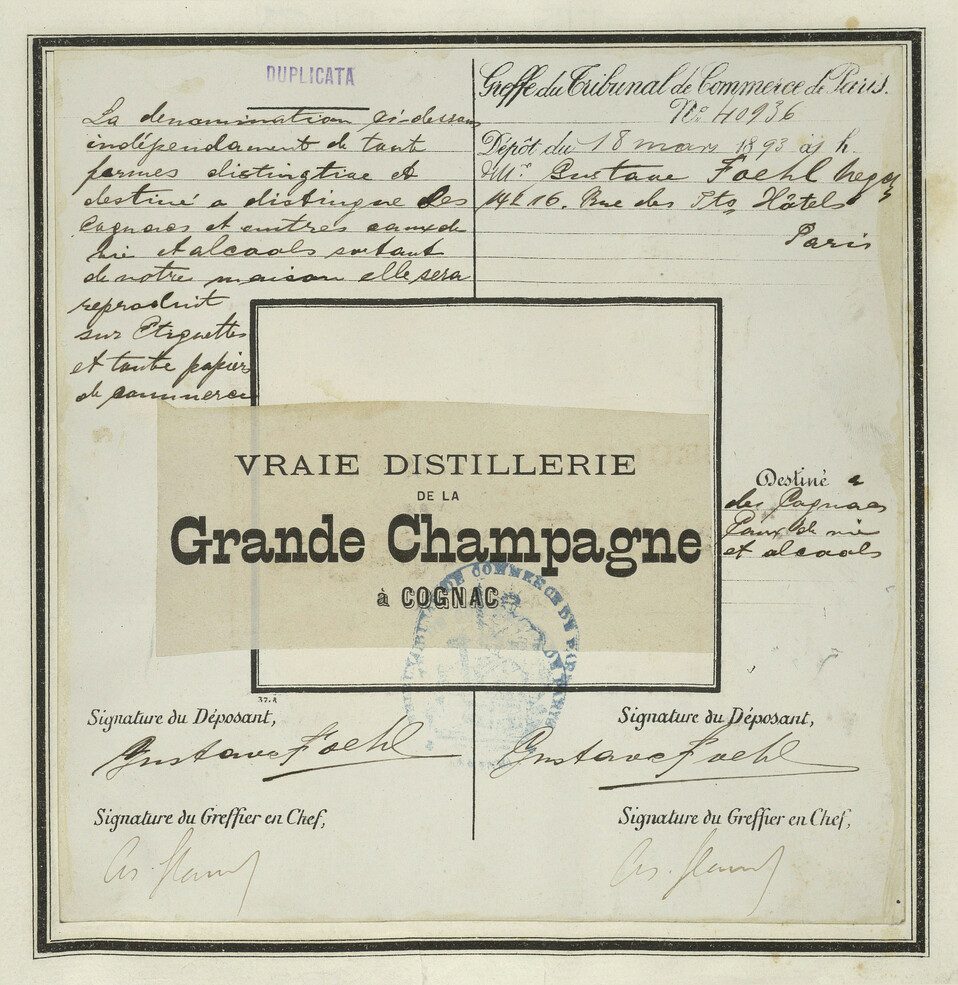 DUPLICATA
La denamination ci-dessous
indépendament de tout
formes distingtive et
destiné a distingue des
Cognacs et autres eaux de
vie et alcools sortant
de notre maison elle sera
reproduit
sur Etiquettes
et toute papiers
de commerce
Greffe du Tribunal de Commerce de Paris.
No. 40936
Dépôt du 18 mars 1893 à h.
Mr. Gustave Foehl Negt
14 & 16. Rue des Pts Hôtels
Paris
VRAIE DISTILLERIE
DE LA
Grande Champagne
à COGNAC
Destiné à
des Cognacs
Eaux de vie
et alcools
37. R
Signature du Déposant,
Gustave Foehl
Signature du Greffier en Chef,
Signature du Déposant,
Gustave Foehl
Signature du Greffier en Chef,